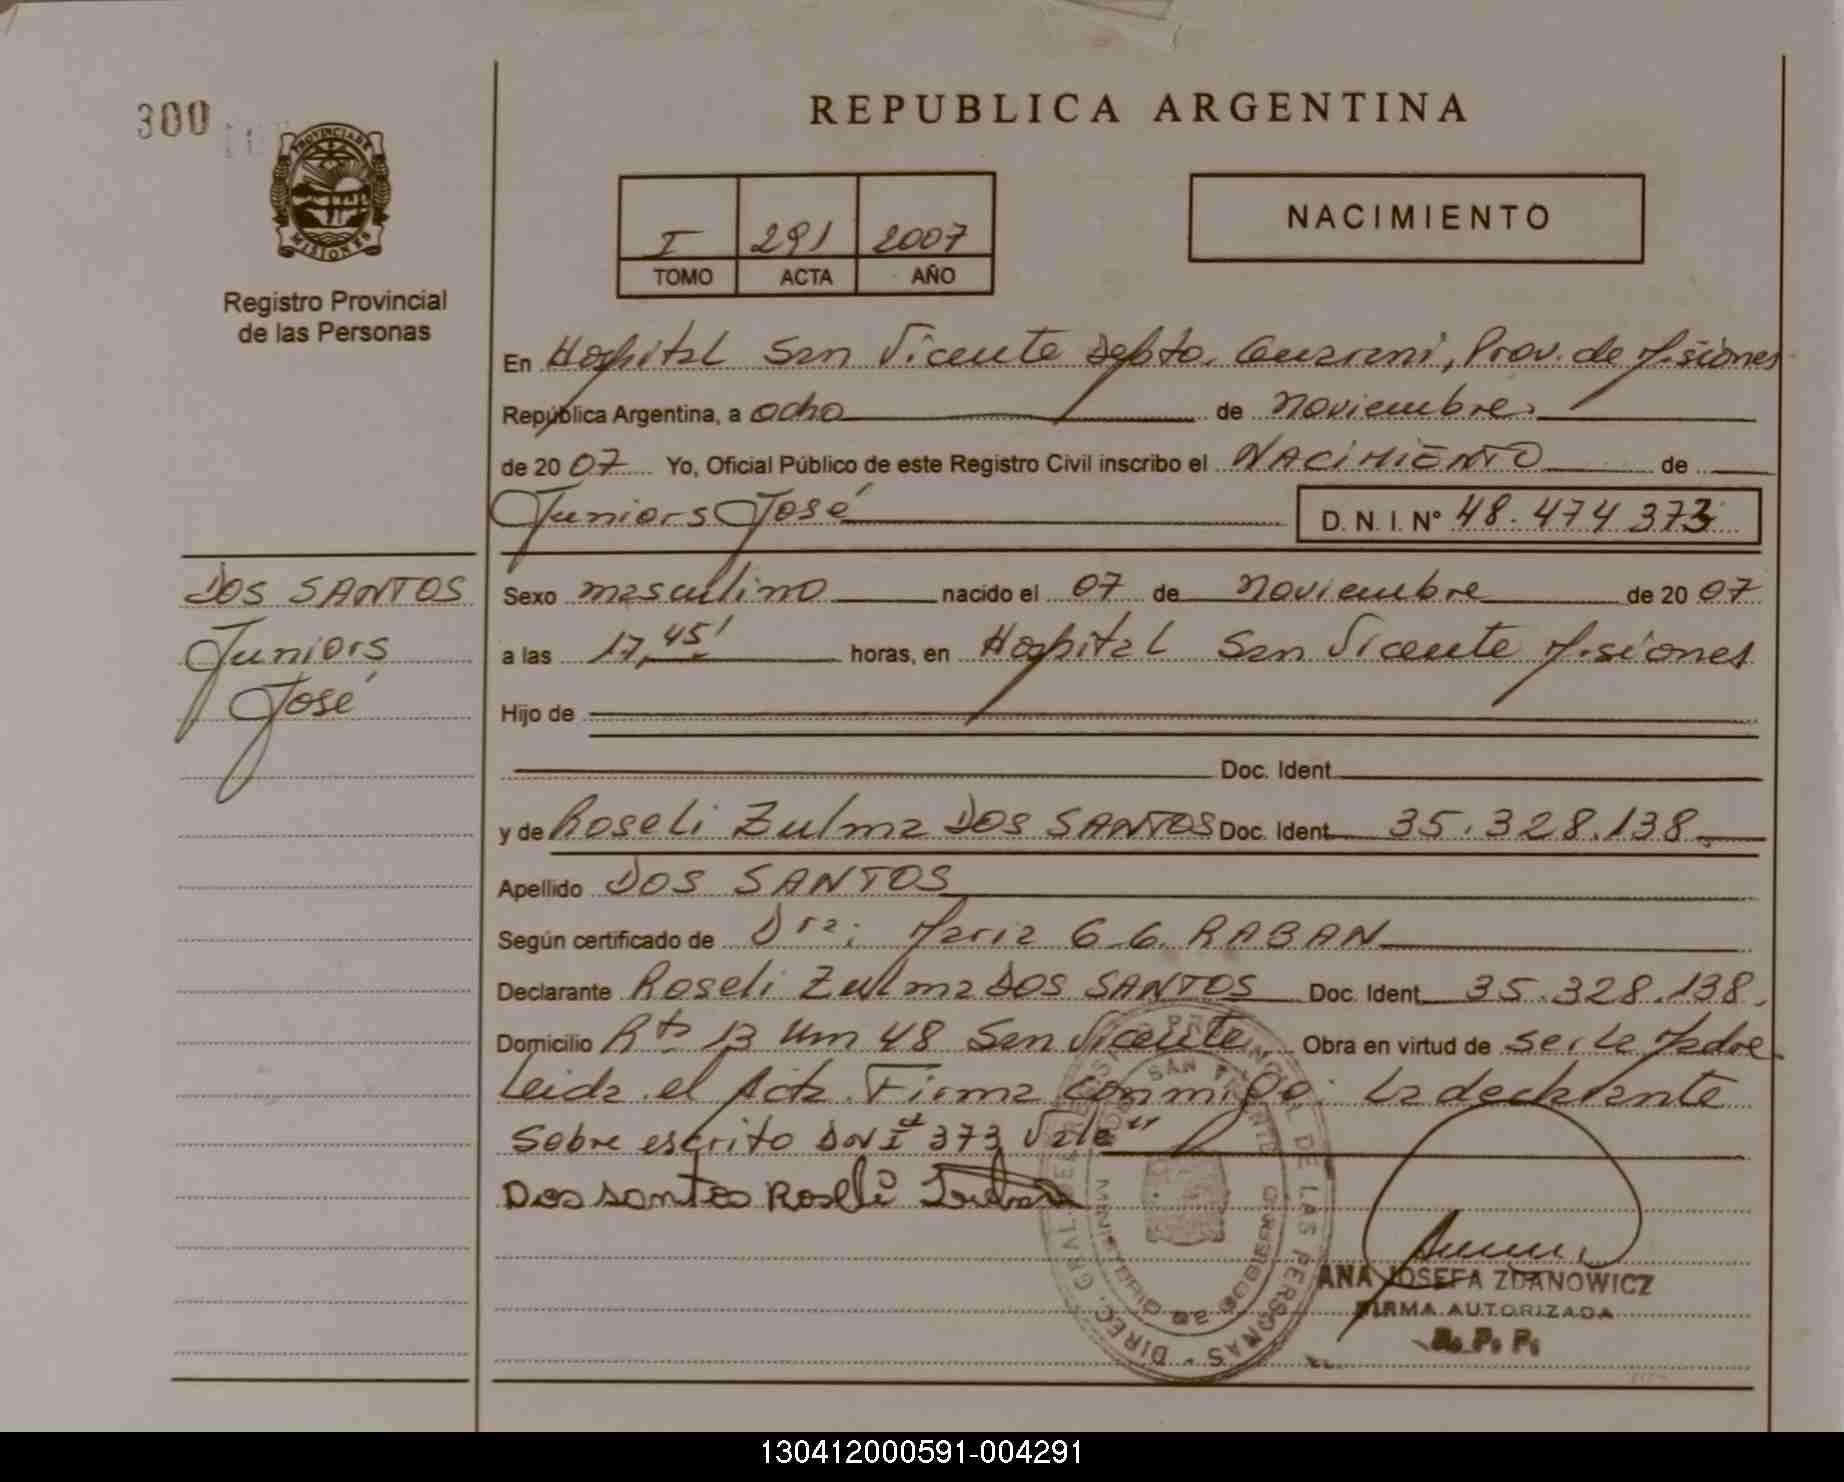 300
PROVINCIA DE
MISIONES
Registro Provincial
de las Personas
REPUBLICA ARGENTINA
I 291 2007
TOMO ACTA AÑO
NACIMIENTO
En Hospital San Vicente Depto. Guarani, Prov. de Misiones
República Argentina, a ocho de Noviembre
de 2007 Yo, Oficial Público de este Registro Civil inscribo el NACIMIENTO de
Juniors José D. N. I. Nº 48.474 373
DOS SANTOS
Juniors
José
Sexo masculino nacido el 07 de Noviembre de 2007
a las 17,45' horas, en Hospital San Vicente Misiones
Hijo de
Doc. Ident.
y de Roseli Zulma DOS SANTOS Doc. Ident. 35.328.138
Apellido DOS SANTOS
Según certificado de Dra: Maria G. G. RABAN
Declarante Roseli Zulma DOS SANTOS Doc. Ident. 35.328.138.
Domicilio Rta 13 Km 48 San Vicente Obra en virtud de ser la Madre
Leida el Acta Firma conmigo: La declarante
Sobre escrito 373 Vale"
Dos santos Roseli
DIREC. GRAL. DE LAS PERSONAS
SAN VICENTE
ANA JOSEFA ZDANOWICZ
FIRMA AUTORIZADA
R. P. P.
130412000591-004291